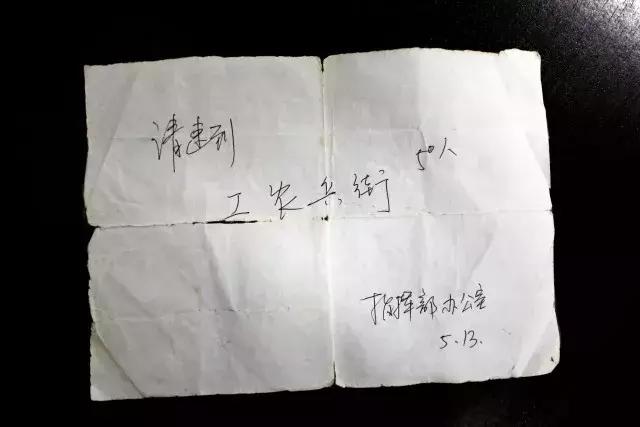 请速到
50人
工农兵街
指挥部办公室
5.13.